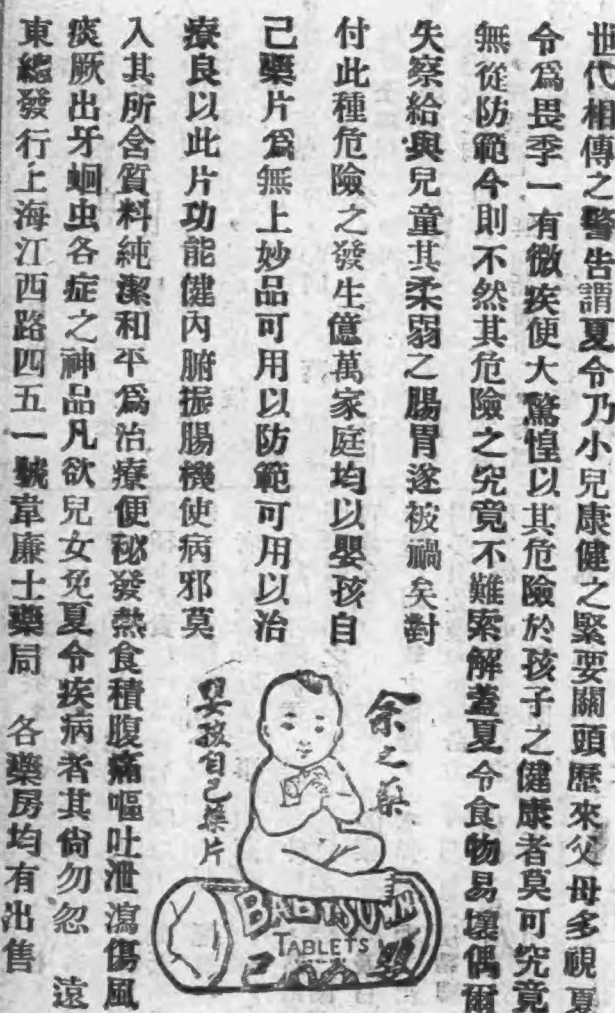 世代相傳之警告謂夏令乃小兒康健之緊要關頭歷來父母多視夏
令爲畏季一有微疾使大驚惶以其危險於孩子之健康者莫可究竟
無從防範今則不然其危險之究竟不難索解蓋夏令食物易壞偶爾
失察給與兒童其柔弱之腸胃遂被禍矣對
付此種危險之發生億萬家庭均以嬰孩自
己藥片爲無上妙品可用以防範可用以治
療良以此片功能健內腑振腸機使病邪莫
入其所含質料純潔和平爲治療便秘發熱食積腹痛嘔吐泄瀉傷風
痰厥出牙蛔虫各症之神品凡欲兒女免夏令疾病者其尙勿忽 遠
東總發行上海江西路四五一號韋廉士藥局 各藥房均有出售
余之藥
嬰孩自己藥片
BABY'S OWN
TABLETS